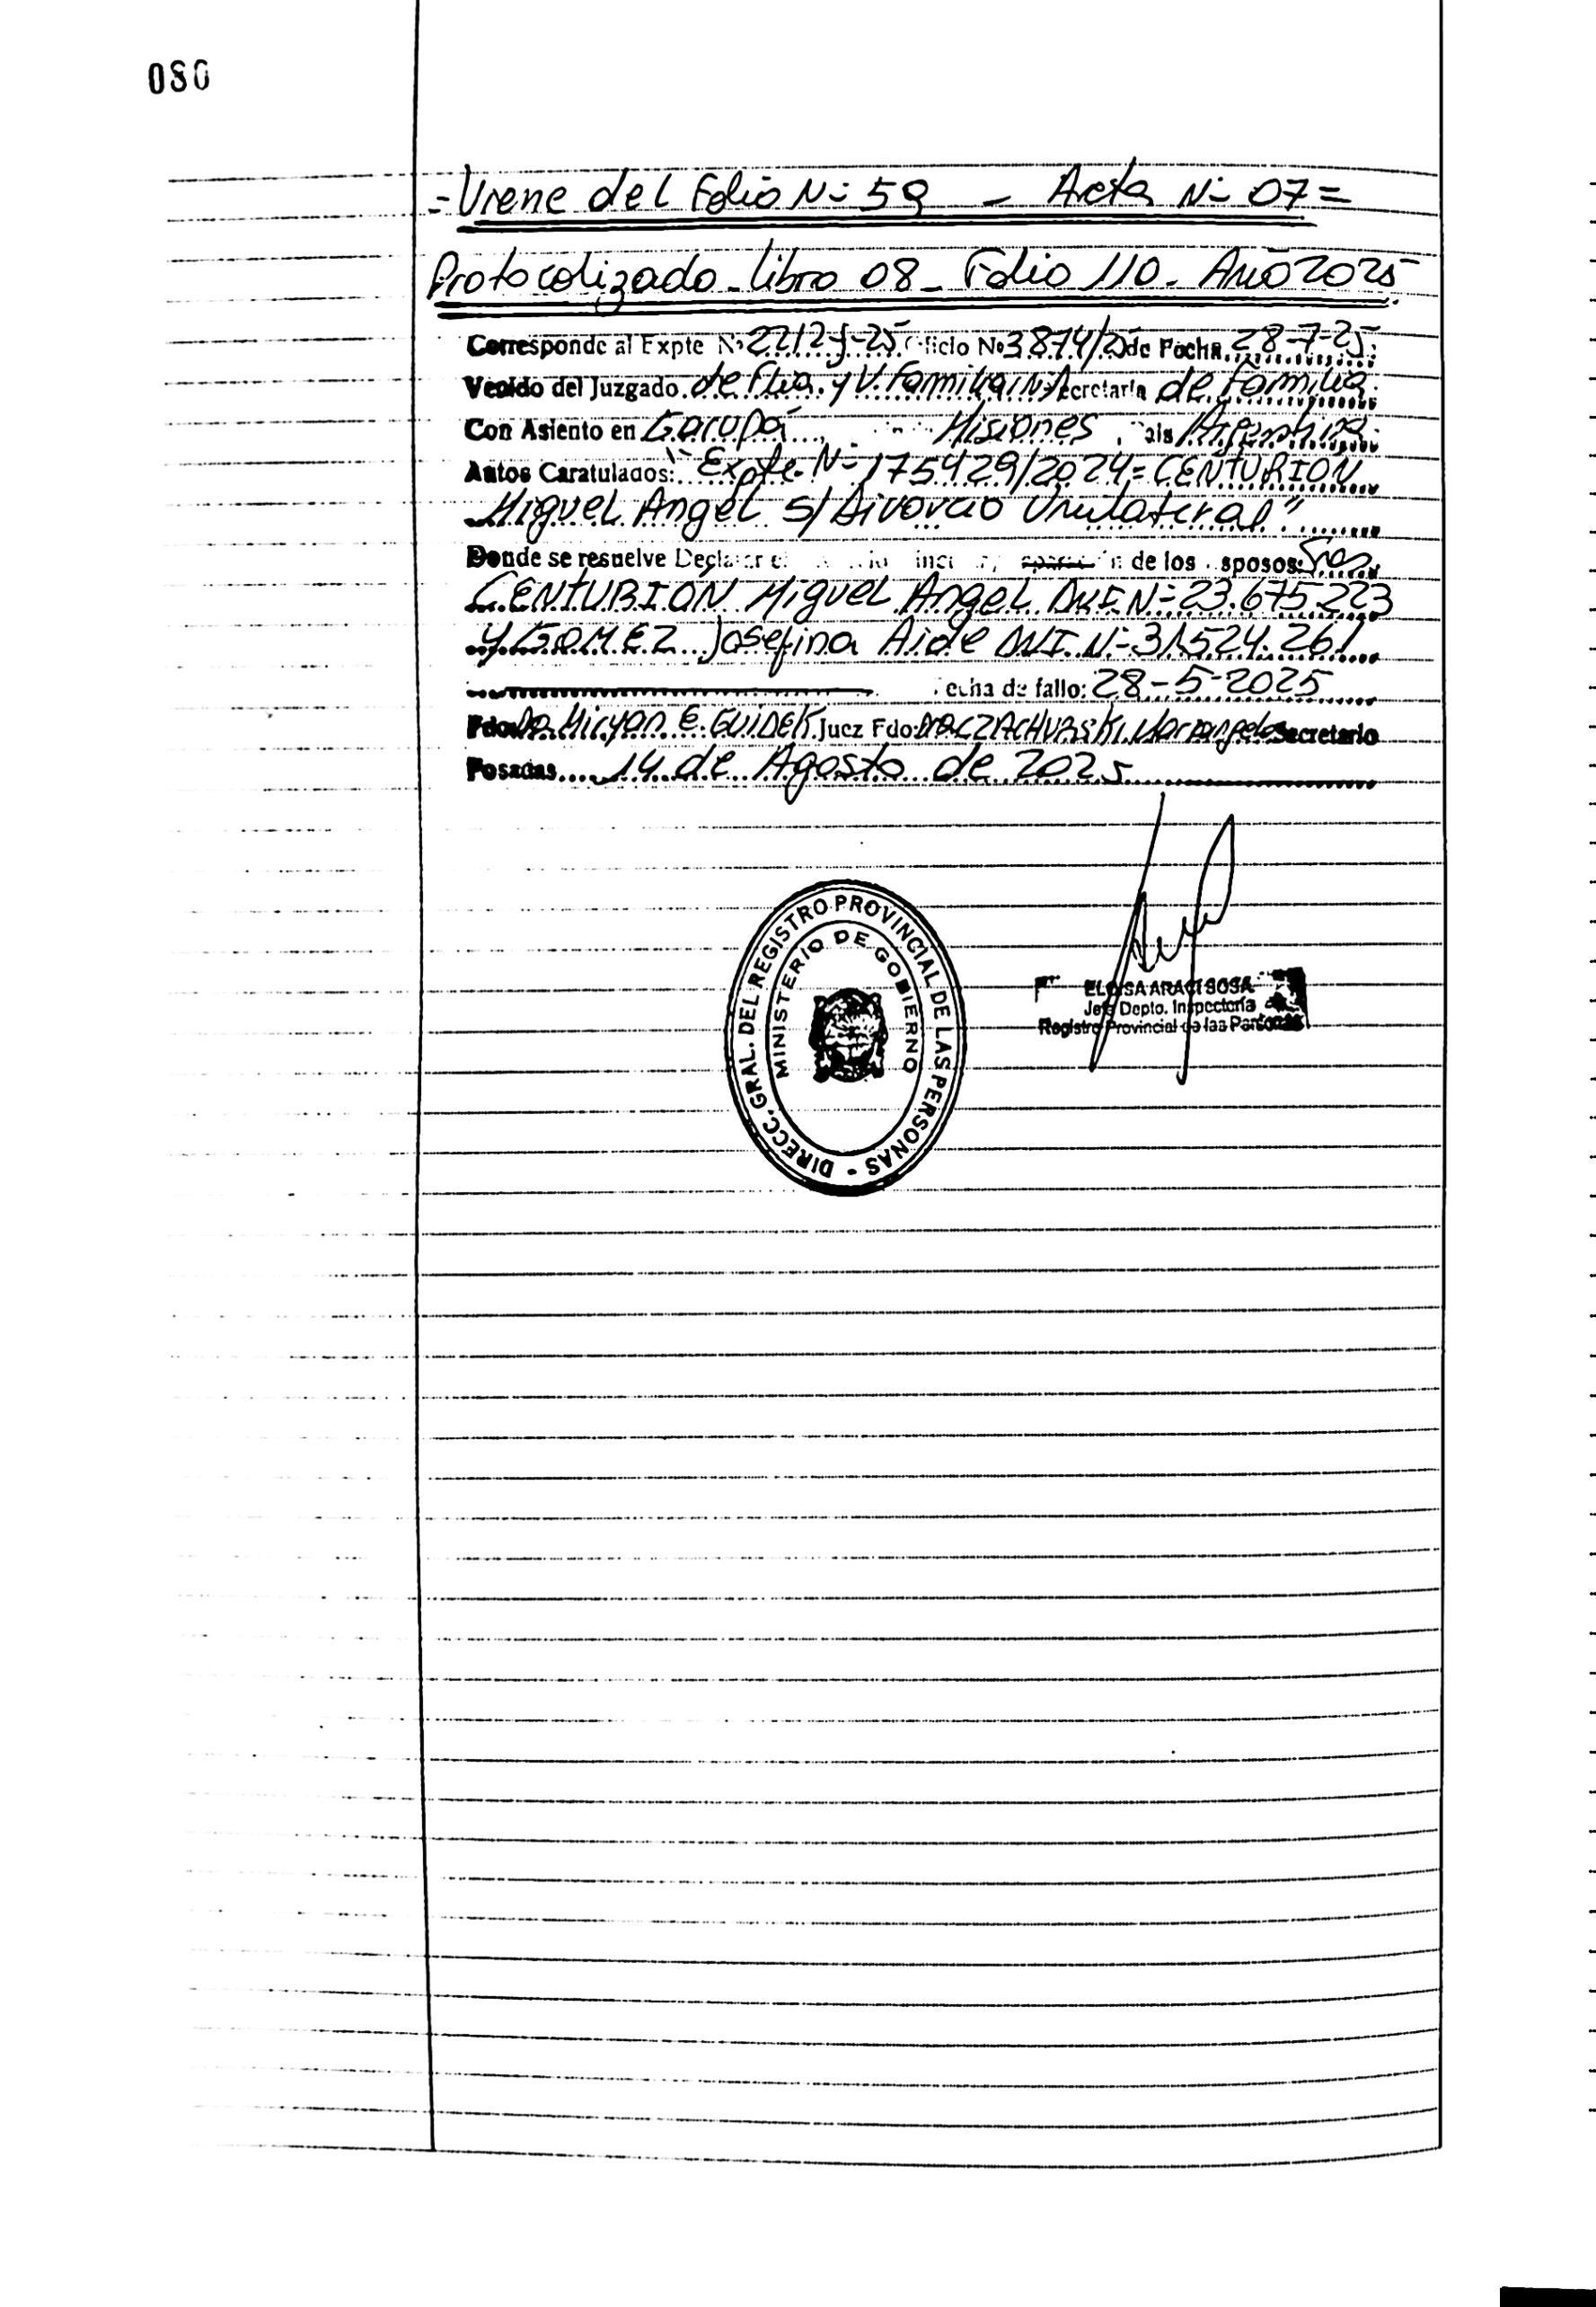 080
=Viene del Folio N= 59 - Acta N= 07=
Protocolizado - libro 08 - Folio 110. Año 2025
Corresponde al Expte Nº 2212 25 Oficio Nº 3874/25 de Fecha 28-7-25
Venido del Juzgado de Flia. y V. Familiar Nº Secretaría de Familia
Con Asiento en Garupá Misiones País Argentina
Autos Caratulados: "Expte. N= 175429/2024= CENTURION
Miguel Angel S/ Divorcio Unilateral"
Donde se resuelve Declarar de los esposos: Sres
CENTURION Miguel Angel DNI N= 23.675.223
y GOMEZ Josefina Aide DNI. N= 31.524.261
Fecha de fallo: 28-5-2025
Fdo. Dra Miryan E. Juez Fdo. Secretario
Posadas 14 de Agosto de 2025
DIRECC. GRAL. DEL REGISTRO PROVINCIAL DE LAS PERSONAS -
MINISTERIO DE GOBIERNO
ELOISA ARACI SOSA
Jefe Depto. Inspectoría
Registro Provincial de las Personas